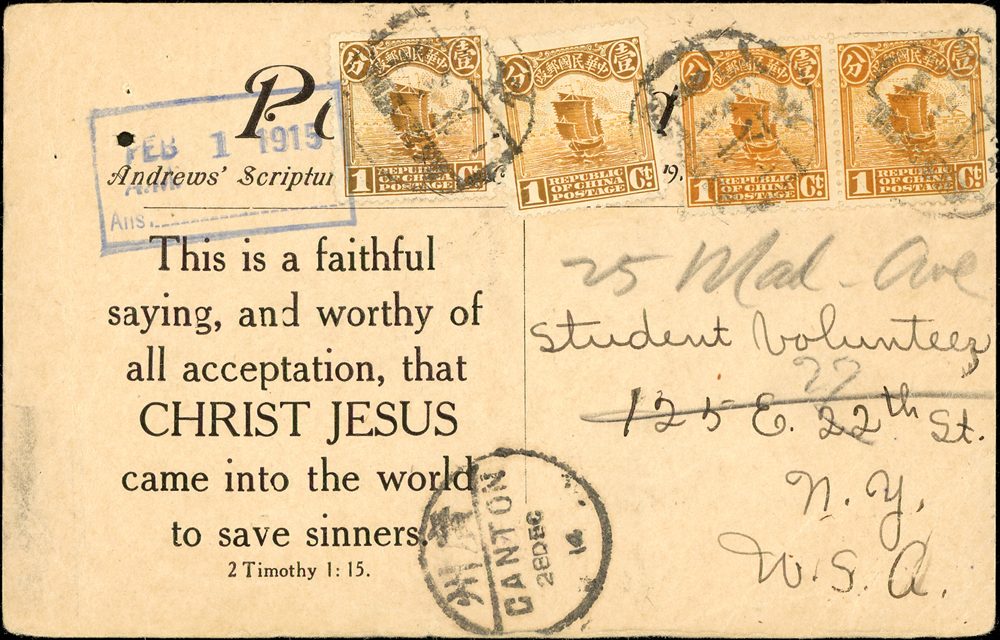 壹 中華民國郵政 分
1 REPUBLIC OF CHINA POSTAGE Ct
壹 中華民國郵政 分
1 REPUBLIC OF CHINA POSTAGE Ct
壹 中華民國郵政 分
1 REPUBLIC OF CHINA POSTAGE Ct
壹 中華民國郵政 分
1 REPUBLIC OF CHINA POSTAGE Ct
Po
FEB 1 1915
A.M.
Ans.
Andrews' Scriptur
19.
This is a faithful
saying, and worthy of
all acceptation, that
CHRIST JESUS
came into the world
to save sinners.
2 Timothy 1: 15.
25 Mad. Ave
Student Volunteer
27
125 E. 22th St.
N. Y.
U. S. A.
廣州
CANTON
28 DEC
14